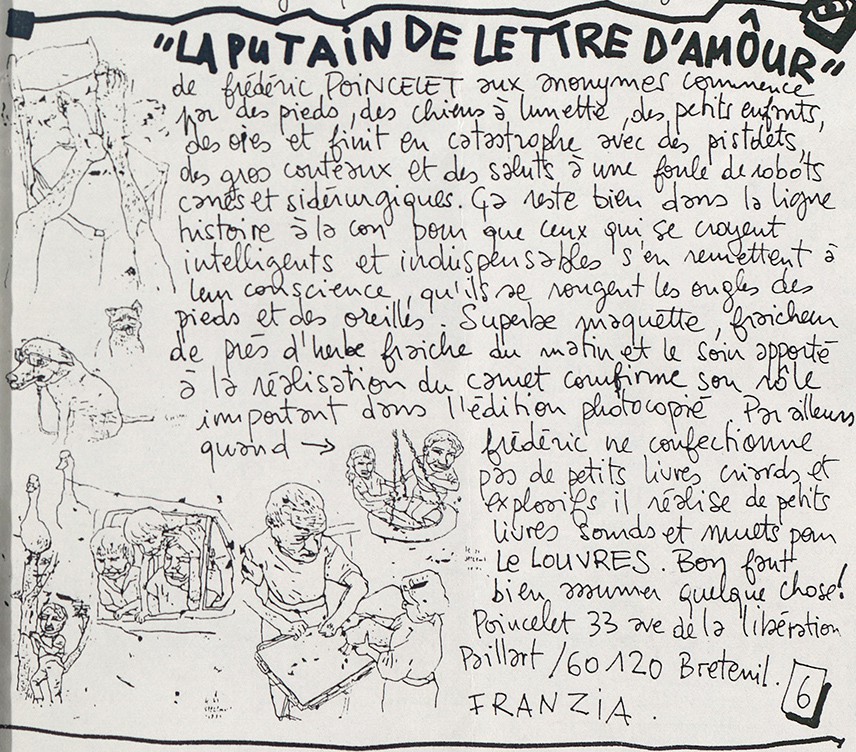 "LA PUTAIN DE LETTRE D'AMÔUR"
de frédéric POINCELET aux anonymes commence
par des pieds, des chiens à lunette, des petits enfants,
des oies et finit en catastrophe avec des pistolets,
des gros couteaux et des saluts à une foule de robots
carrés et sidérurgiques. Ça reste bien dans la ligne
histoire à la con pour que ceux qui se croyent
intelligents et induispensables s'en remettent à
leur conscience, qu'ils se rongent les ongles des
pieds et des oreilles. Superbe maquette, fraicheur
de prés d'herbe fraiche du matin et le soin apporté
à la réalisation du carnet comfirme son rôle
important dans l'édition photocopié Par ailleurs
quand → frédéric ne confectionne
pas de petits livres criards et
explosifs il réalise de petits
livres sourds et muets pour
Le LOUVRES. Bon faut
bien assumer quelque chose!
Poincelet 33 ave de la libération
Paillart / 60120 Breteuil.
FRANZIA.
6